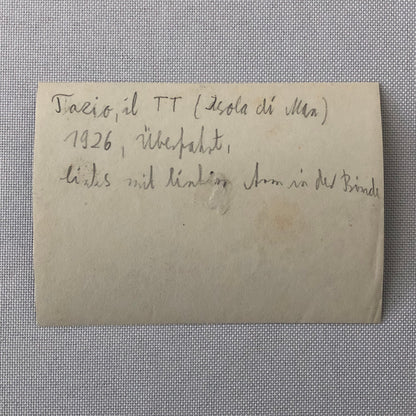 Tazio, il TT (Isola di Man)
1926, Überfahrt,
links mit linkem Arm in der Binde